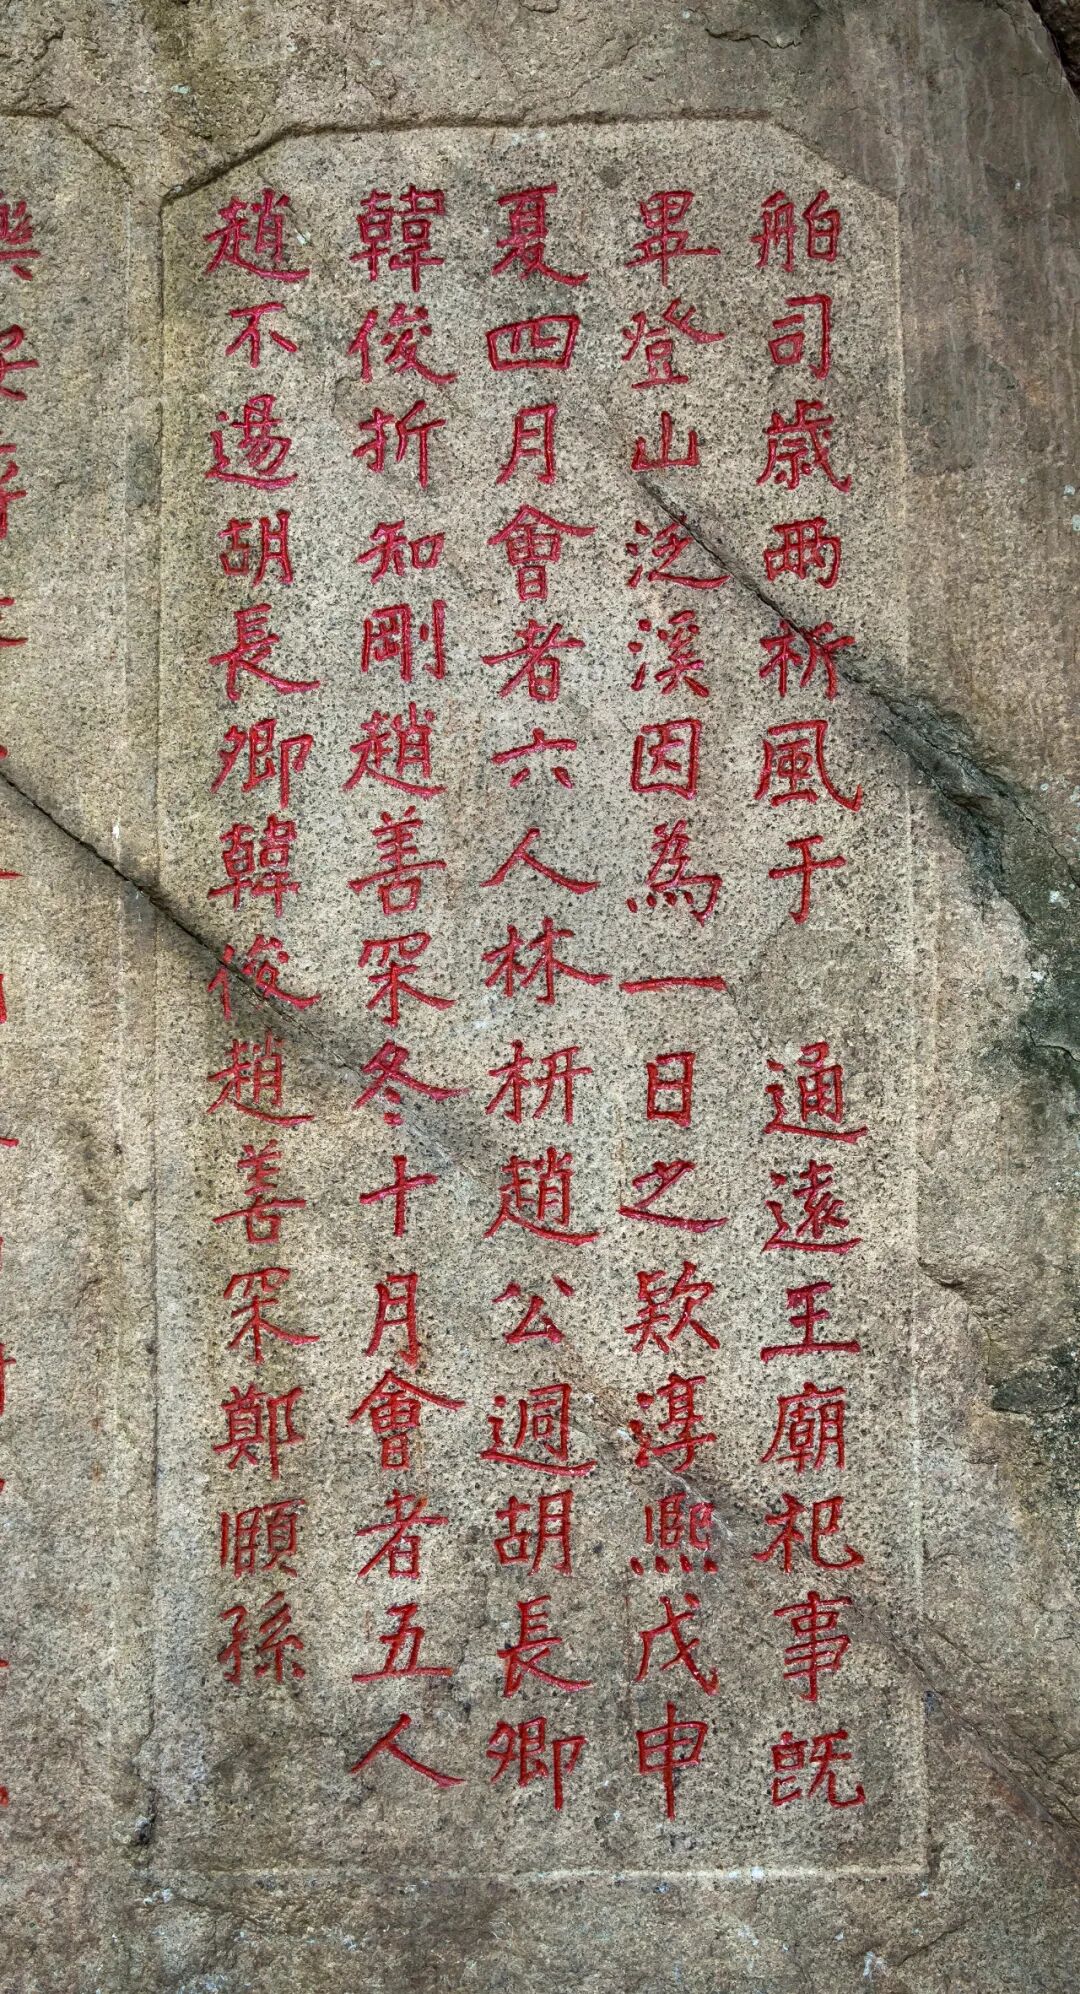 舶司歲兩祈風于　通遠王廟祀事既
畢登山泛溪因為一日之欵淳熙戊申
夏四月會者六人林枅趙公逈胡長卿
韓俊折知剛趙善罙冬十月會者五人
趙不逷胡長卿韓俊趙善罙鄭頤孫